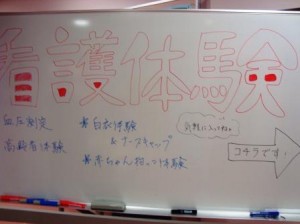 看護体験
血圧測定
高齢者体験
★白衣体験
&ナースキャップ
★赤ちゃん抱っこ体験
気軽に入ってね
コチラです!